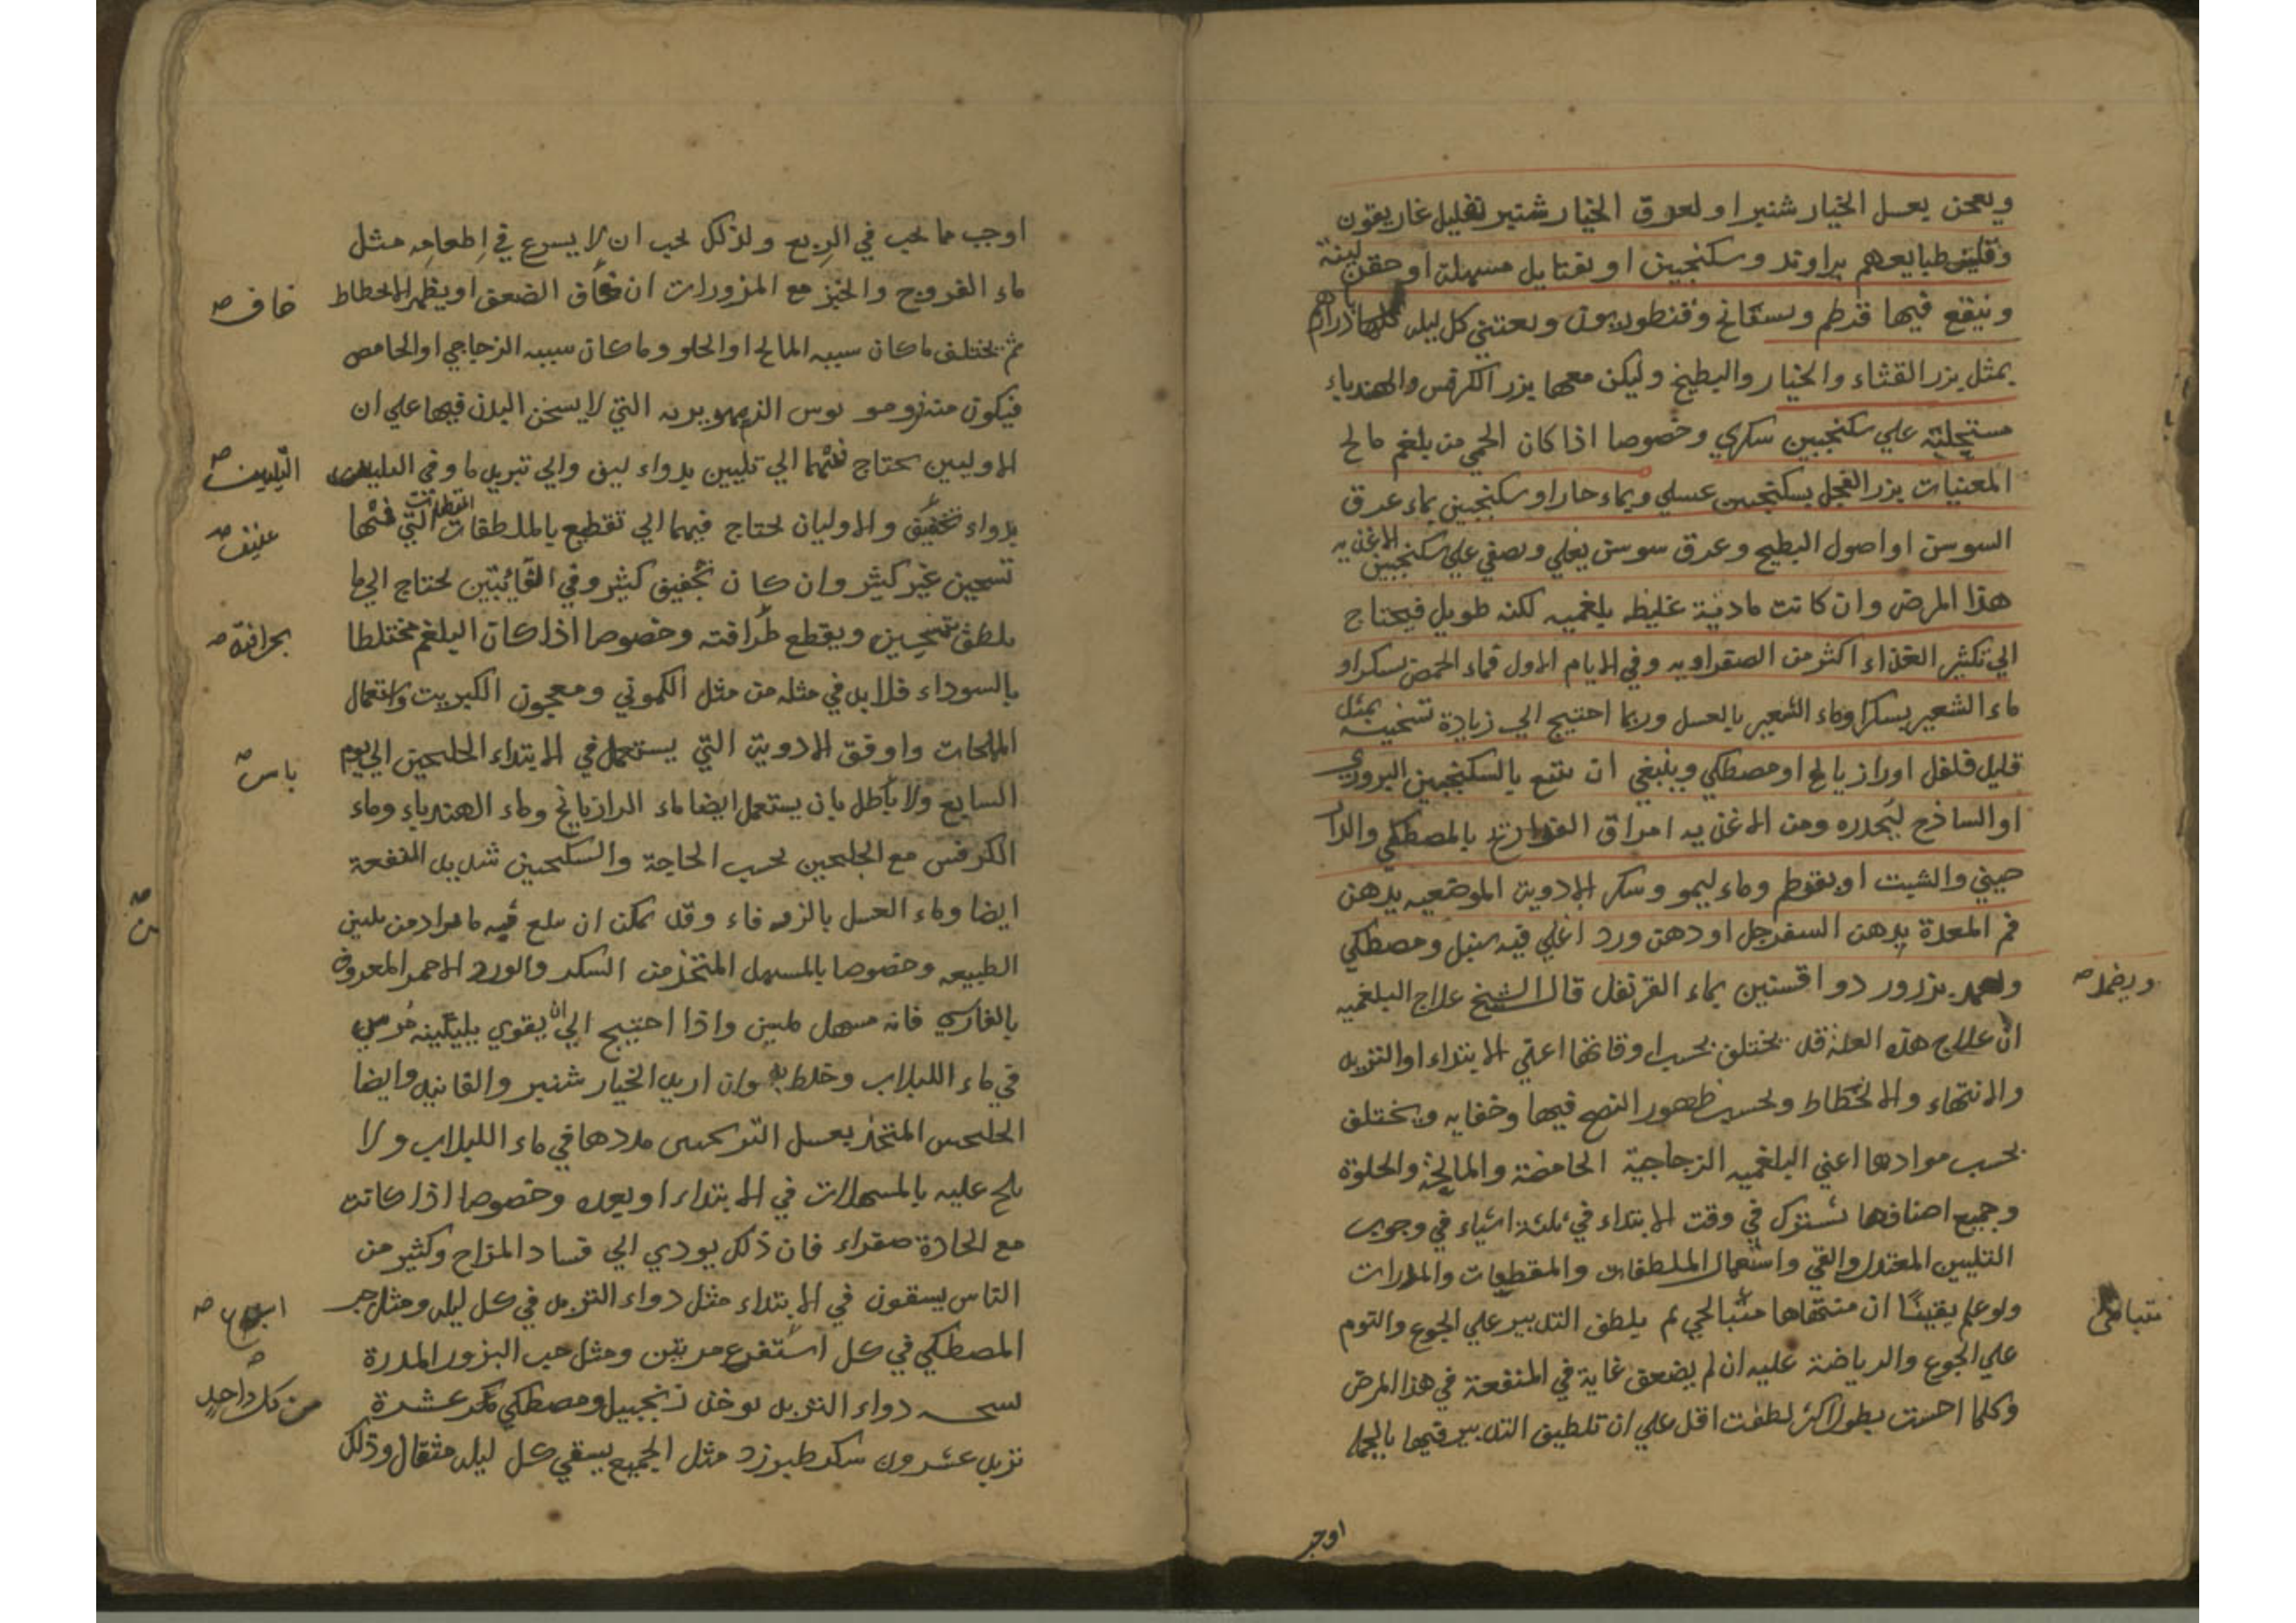 ويعجن بعسل الخيار شنبر او لعوق الخيار شنبر بقليل غاريقون
وتليين طبايعهم براوند وسكنجبين او بفتايل مسهلة او حقن لينة
وينقع فيها قرطم وبسفانج وقنطوريون ويعتني كل ليلة
بمثل بزر القثاء والخيار والبطيخ وليكن معها بزر الكرفس والهندباء
مستحلبة علي سكنجبين سكري وخصوصا اذا كان الحمي من بلغم مالح
المعنيات بزر الفجل بسكنجبين عسلي وبماء حار او سكنجبين بماء عرق
السوسن او اصول البطيخ وعرق سوسن يغلي ويصفي علي سكنجبين الاغذيه
هذا المرض وان كانت مادية غليظه بلغميه لكنه طويل فيحتاج
الي تكثير الغذاء اكثر من الصفراويه وفي الايام الاول فماء الحمص بسكر او
ماء الشعير بسكر او ماء الشعير بالعسل وربما احتيج الي زيادة تسخينه بمثل
قليل فلفل او رازيانج او مصطكي وينبغي ان يتبع بالسكنجبين البزوري
او الساذج ليحدره ومن الاغذيه امراق الفراريج بالمصطكي والدار
صيني والشبت او بقرطم وماء ليمو وسكر الادوية الموضعيه يدهن
فم المعدة بدهن السفرجل او دهن ورد اغلي فيه سنبل ومصطكي
بزرور دوا افسنتين بماء القرنفل قال الشيخ علاج البلغميه
ويضمد
ان علاج هذه العلة قد يختلف بحسب اوقاتها اعني الابتداء او التزيد
والانتهاء والانحطاط وبحسب ظهور النضج فيها وخفايه ويختلف
بحسب موادها اعني البلغميه الزجاجية الحامضة والمالحة والحلوة
وجميع اصنافها تشترك في وقت الابتداء في ثلثة اشياء في وجوب
التليين المعتدل والقي واستعمال الملطفات والمقطعات والمدرات
ولو علم يقينا ان منتهاها لم يلطف التدبير علي الجوع والنوم
علي الجوع والرياضة عليه ان لم يضعف غاية في المنفعة في هذا المرض
وكلما احست بطول اكثر لطفت اقل علي ان تلطيف التدبير فيها بالجملة
اوجب
اوجب مما يجب في الربع ولذلك يجب ان لا يسرع في اطعامه مثل
ماء الفروج والخبز مع المزورات ان الضعف او يظهر الانحطاط
خاف
ثم يختلف ما كان سببه المالح او الحلو وما كان سببه الزجاجي او الحامض
فيكون منذ بوس الزمهريريه التي لا يسخن البدن فيها علي ان
الاوليين يحتاج فيهما الي تليين بدواء لين والي تبريد ما وفي
بدواء والاوليان يحتاج فيهما الي تقطيع بالملطفات التي فيها
عنيف
تسخين غير كثير وان كان تجفيف كثير وفي الثانيتين يحتاج الي ما
يلطف بتسخين ويقطع وخصوصا اذا كان البلغم مختلطا
بحرافة
بالسوداء فلا بد في مثله من مثل الكموني ومعجون الكبريت واستعمال
الملحات واوفق الادوية التي يستعمل في الابتداء الجلنجبين الي يوم
باس
السابع ولا بان يستعمل ايضا ماء الرازيانج وماء الهندباء وماء
الكرفس مع الجلنجبين بحسب الحاجة والسكنجبين شديد المنفعة
ايضا وماء العسل بالزوفاء وقد يمكن ان يبلغ فيه ما يراد من تليين
الطبيعه وخصوصا بالمسهل المتخذ من السكر والورد الاحمر المعروف
بالفارسي فانه مسهل ملين واذا احتيج الي ان يقوي تليينه مرس
في ماء اللبلاب وخلط به وان اريد الخيار شنبر والفانيد وايضا
الجلنجبين المتخذ بعسل الترنجبين مدد ها في ماء اللبلاب ولا
يلح عليه بالمسهلات في الابتداء او بعده وخصوصا اذا كانت
مع الحادة صفراء فان ذلك يودي الي فساد المزاج وكثير من
الناس يسقون في الابتداء مثل دواء التربد في كل ليلة ومثل حب
المصطكي في كل مرتين ومثل حب البزور المدرة
اسبوع
نسخه دواء التربد يوخذ زنجبيل ومصطكي عشرة
من كل واحد
تربد عشرون سكر طبرزد مثل الجميع يسقي كل ليلة مثقال وذلك